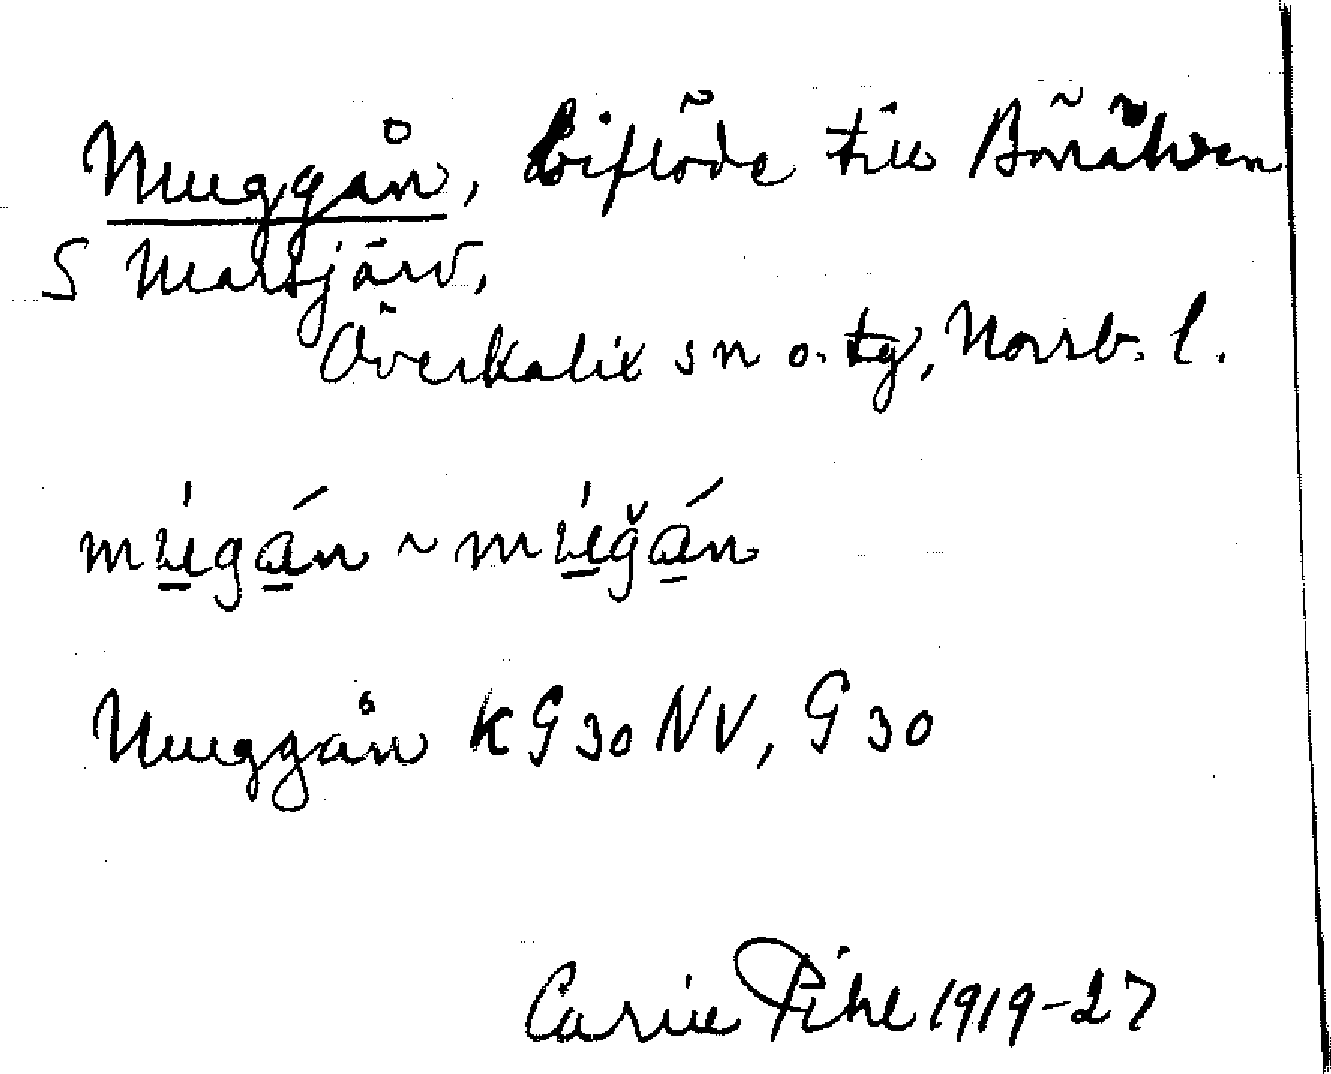 Muggån, biflöde till Börälven
S Marsjärv,
Överkalix sn o. tg, Norrb. l.
mu̲̍gá̲n ~ mu̲̍ğá̲n
Muggån K G30 NV, G 30
Carin Pihl 1919-27